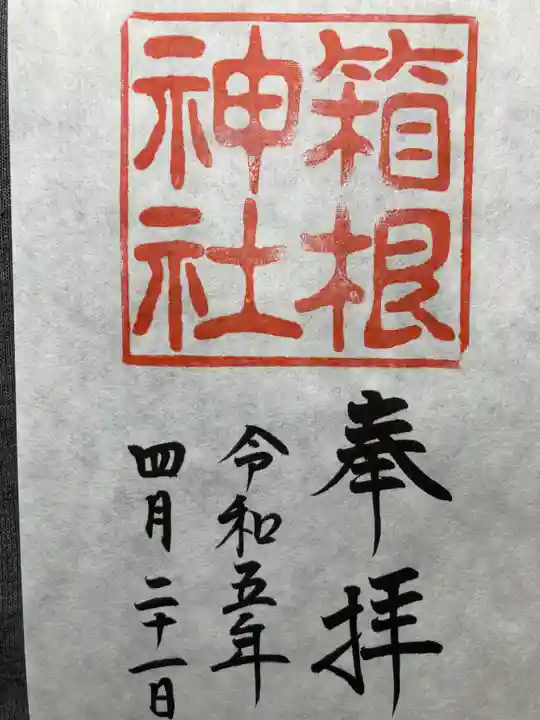 箱根
神社
奉拝
令和五年
四月二十一日